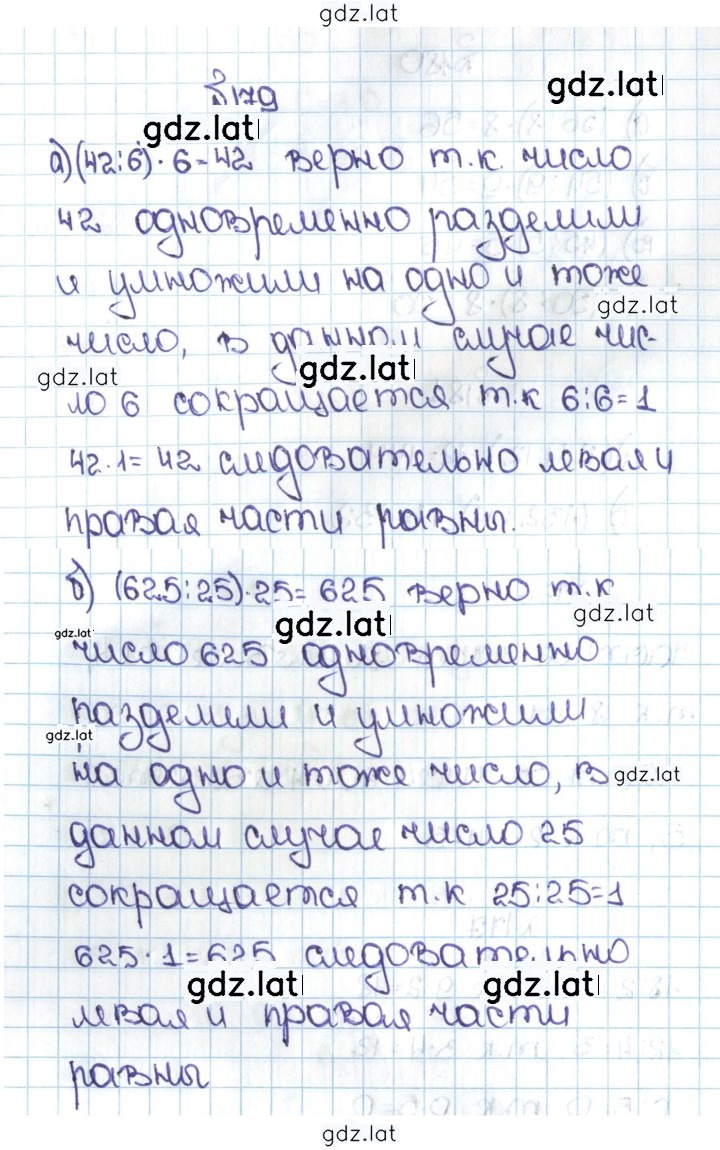 gdz.lat
№179
gdz.lat
gdz.lat
а) (42:6)·6=42 верно т.к. число
42 одновременно разделили
и умножили на одно и тоже
gdz.lat
число, в данном случае чис-
gdz.lat
gdz.lat
ло 6 сокращается т.к 6:6=1
42·1=42 следовательно левая и
правая части равны.
б) (625:25)·25=625 верно т.к
gdz.lat
gdz.lat
gdz.lat
число 625 одновременно
разделили и умножили
gdz.lat
на одно и тоже число, в
gdz.lat
данном случае число 25
сокращается т.к 25:25=1
625·1=625 следовательно
gdz.lat
gdz.lat
левая и правая части
равны
gdz.lat